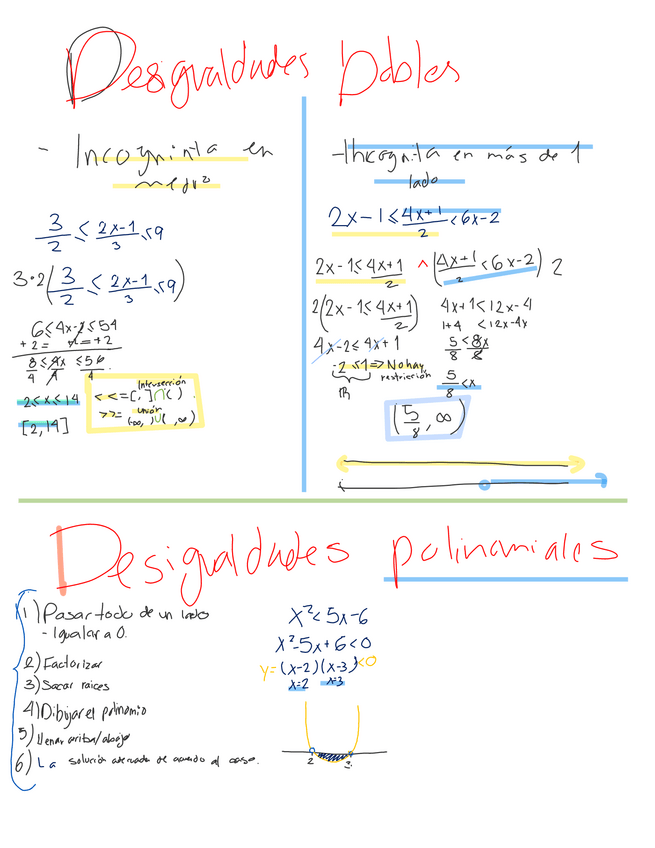 Desigualdades Dobles
- Incogninta en
medio
3/2 ≤ 2x-1/3 ≤ 9
3·2(3/2 ≤ 2x-1/3 ≤ 9)
6 ≤ 4x-2 ≤ 54
+2= +2= =+2
8/4 ≤ 4x/4 ≤ 56/4
2 ≤ x ≤ 14
[2,14]
Intersección
< <= [,]∩( )
Unión
> >= (-∞, )∪( ,∞)
- Incognita en más de 1
lado
2x-1 ≤ 4x+1/2 < 6x-2
2x-1 ≤ 4x+1/2 ^ (4x+1/2 < 6x-2) 2
2(2x-1 ≤ 4x+1/2)
4x-2 ≤ 4x+1
-2 ≤ 1 => No hay
restricción
ℝ
4x+1 < 12x-4
1+4 < 12x-4x
5/8 < 8x/8
5/8 < x
(5/8, ∞)
Desigualdades polinomiales
1) Pasar todo de un lado
- Igualar a 0.
2) Factorizar
3) Sacar raices
4) Dibujar el polinomio
5) llenar arriba/abajo
6) La solución adecuada de acuerdo al caso.
x² < 5x-6
x²-5x+6 < 0
y= (x-2)(x-3) < 0
x=2 x=3
2 3